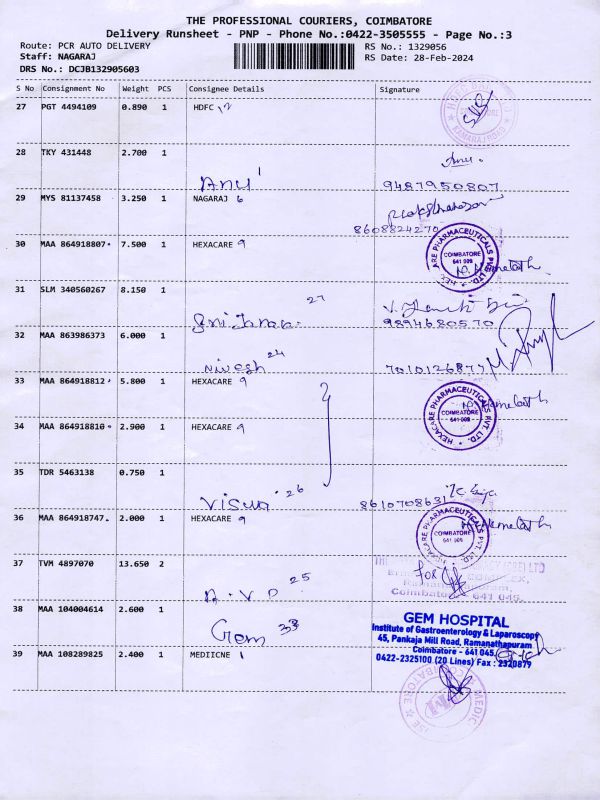 THE PROFESSIONAL COURIERS, COIMBATORE
Delivery Runsheet - PNP - Phone No.:0422-3505555 - Page No.:3
Route: PCR AUTO DELIVERY
RS No.: 1329056
Staff: NAGARAJ
RS Date: 28-Feb-2024
DRS No.: DCJB132905603
S No Consignment No Weight PCS Consignee Details Signature
27 PGT 4494109 0.890 1 HDFC
28 TKY 431448 2.700 1
Anu 9487950807
29 MYS 81137458 3.250 1 NAGARAJ 6
8608824270
30 MAA 864918807 7.500 1 HEXACARE 9
HEXACARE PHARMACEUTICALS PVT LTD.
COIMBATORE
641 009
31 SLM 340560267 8.150 1
27
9894680570
32 MAA 863986373 6.000 1
Nivesh 24 7010126877
33 MAA 864918812 5.800 1 HEXACARE 9
HEXACARE PHARMACEUTICALS PVT LTD.
COIMBATORE
641 009
34 MAA 864918810 2.900 1 HEXACARE 9
35 TDR 5463138 0.750 1
26 8610708631
36 MAA 864918747 2.000 1 HEXACARE 9
HEXACARE PHARMACEUTICALS PVT LTD.
COIMBATORE
641 009
37 TVM 4897070 13.650 2
A.V.P. 25 for
Coimbatore 641 045.
38 MAA 104004614 2.600 1
Gem 33
GEM HOSPITAL
Institute of Gastroenterology & Laparoscopy
45, Pankaja Mill Road, Ramanathapuram
Coimbatore - 641 045.
0422-2325100 (20 Lines) Fax : 2320879
39 MAA 108289825 2.400 1 MEDIICNE 1